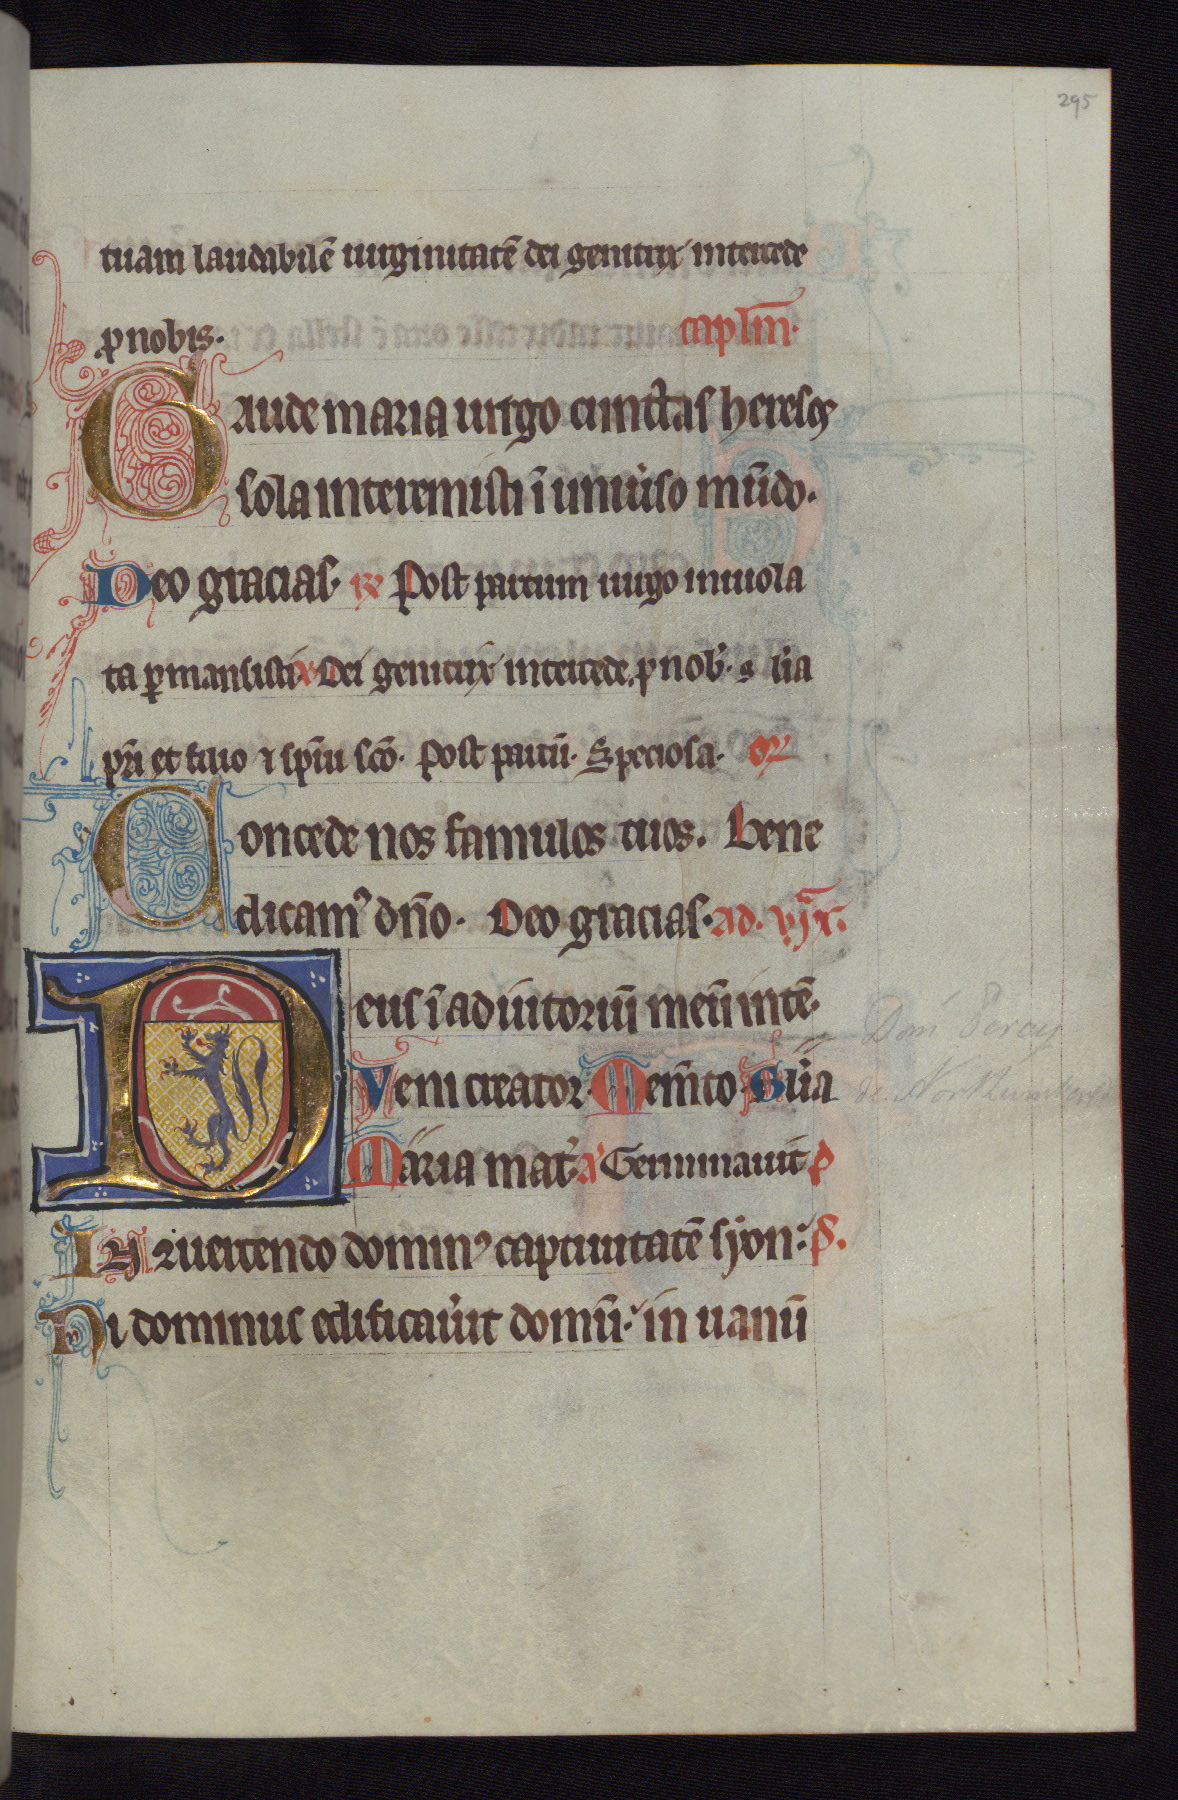 295
tuam laudabilē uirginitatē dei genitrix intercede
ꝓ nobis. capl̄m.
Gaude maria uirgo cunctas heresꝫ
sola interemisti ī uniu̓so mūdo.
Deo gracias. ꝶ Post partum uirgo inuiola
ta ꝑmansisti. Dei genitrix intercede ꝓ nob̓. s l̓ia
pr̄i et filio ⁊ sp̄iu sc̄o. Post partū. Speciosa. or̄
Concede nos famulos tuos. Bene
dicam⁹ dn̄o. Deo gracias. ad. vj̄x.
Deus ī adiutoriū meū intē.
Veni creator. Mem̄to. Gl̓ia
Maria mat̓ a̓ Germinauit p̄
IN ꝯuertendo domin⁹ captiuitatē syon: p̄.
Ni dominus edificau̓it domū: in uanū
Dom̄ Percy
de Northumber